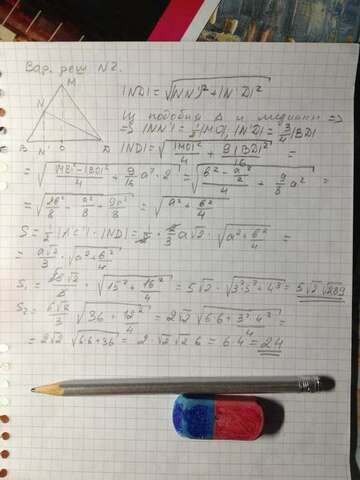 Вар. реш N2.
M
N
B N' O D
|ND| = √(|NN'|² + |N'D|²)
Из подобия Δ и медианы =>
=> |NN'| = ½|MO|, |N'D| = ¾|BD|
|ND| = √(|MO|²/4 + 9|BD|²/16) =
= √((|MB|² - |BO|²)/4 + 9/16 a²·2) = √((b² - a²/2)/4 + 9/8 a²) =
= √(2b²/8 - a²/8 + 9a²/8) = √(a² + b²/4)
S = ½ · |ND| = · 2/3 a√2 · √(a² + b²/4) =
= a√2/3 · √(a² + b²/4)
S₁ = √2 · √(15² + 16²/4) = 5√2 · √(3²5² + 4³) = 5√2 √289
S₂ = 6√2/3 √(36 + 12²/4) = 2√2 √(6·6 + 3²·4²/4) =
= 2√2 √(6·6 + 36) = 2·√2·√2·6 = 6·4 = 24